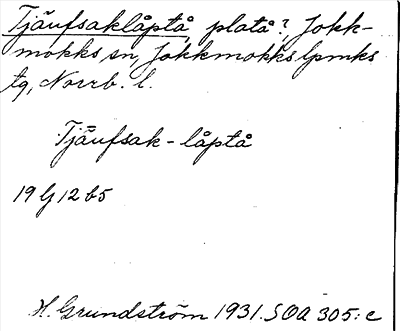 Tjäufsaklåptå, platå?, Jokk-
mokks sn, Jokkmokks lpmks
tg, Norrb. l.
Tjäufsak-låptå
19 G 12 b5
H. Grundström 1931. SOA 305: c